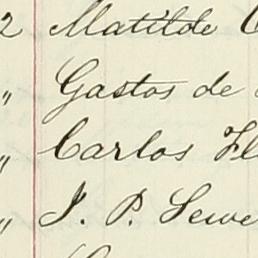 2 Matilde
" Gastos de
" Carlos Fl
" J. P. Sewe